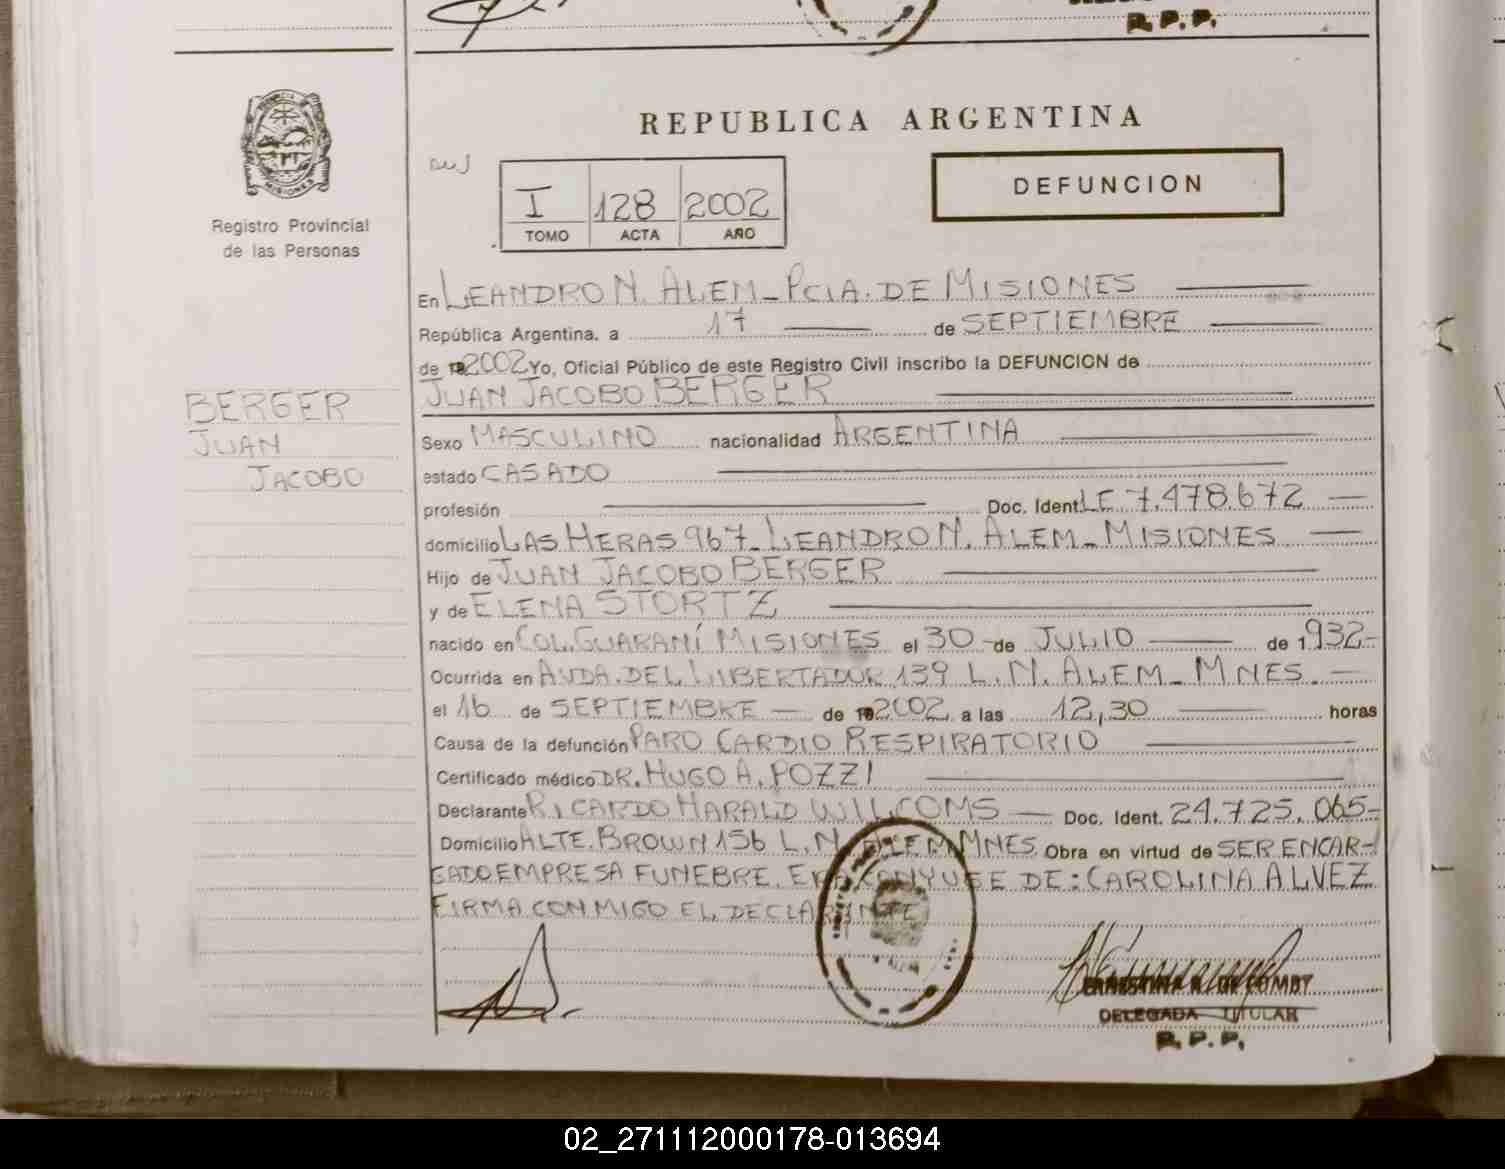 R.P.P.
REPUBLICA ARGENTINA
PROVINCIA DE
MISIONES
Registro Provincial
de las Personas
I 128 2002
TOMO ACTA AÑO
DEFUNCION
En LEANDRO N. ALEM - PCIA. DE MISIONES
República Argentina, a 17 de SEPTIEMBRE
de 2002 Yo, Oficial Público de este Registro Civil inscribo la DEFUNCION de
JUAN JACOBO BERGER
BERGER
JUAN
JACOBO
Sexo MASCULINO nacionalidad ARGENTINA
estado CASADO
profesión Doc. Ident. LE 7.478.672
domicilio LAS HERAS 967 - LEANDRO N. ALEM - MISIONES
Hijo de JUAN JACOBO BERGER
y de ELENA STORTZ
nacido en COL. GUARANÍ MISIONES el 30 de JULIO de 1932-
Ocurrida en AVDA. DEL LIBERTADOR 139 L. N. ALEM - MNES.
el 16 de SEPTIEMBRE de 2002 a las 12,30 horas
Causa de la defunción PARO CARDIO RESPIRATORIO
Certificado médico DR. HUGO A. POZZI
Declarante RICARDO HARALD WILLCOMS Doc. Ident. 24.725.065-
Domicilio ALTE. BROWN 156 L. N. ALEM MNES Obra en virtud de SER ENCAR-
GADO EMPRESA FUNEBRE. ERA CONYUGE DE: CAROLINA ALVEZ
FIRMA CONMIGO EL DECLARANTE
DELEGADA TITULAR
R.P.P.
02_271112000178-013694